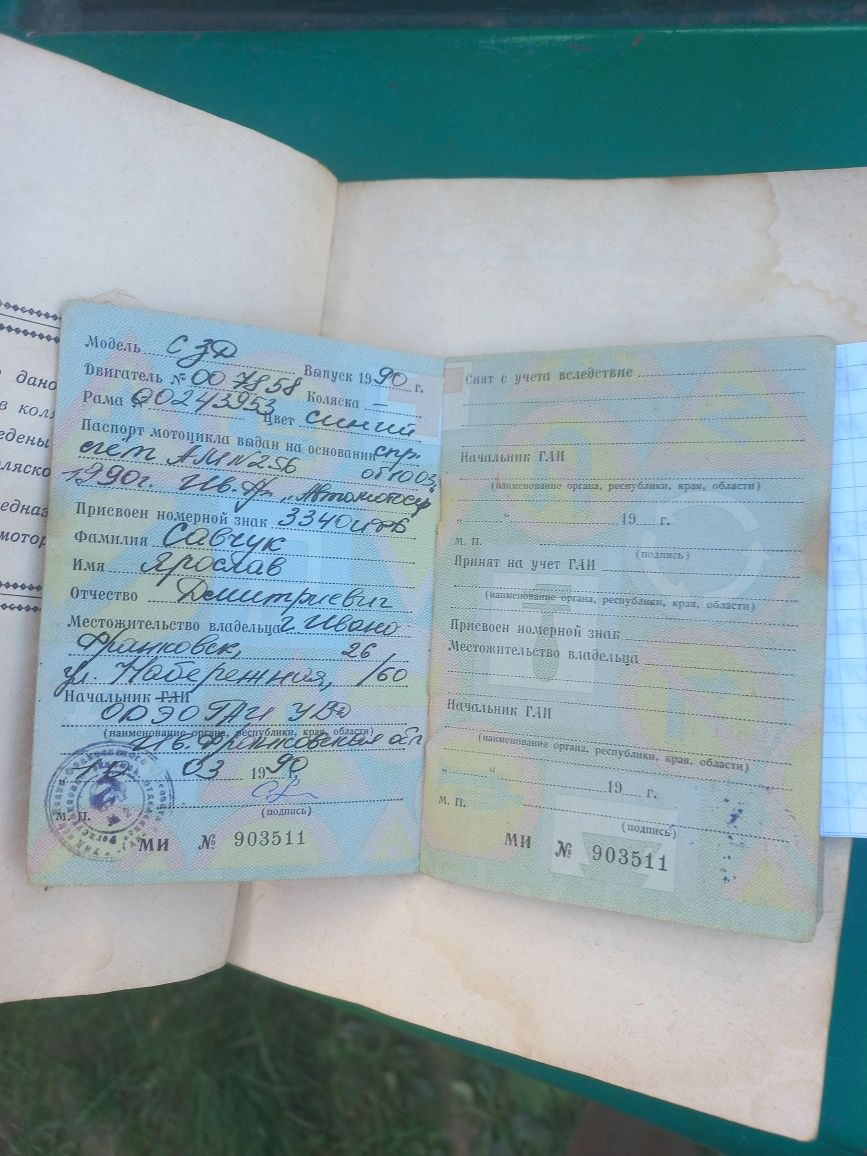 дано
в
Модель СЗД Выпуск 1990 г.
Двигатель № 007858 Коляска —
Рама 00243953 Цвет синий
Паспорт мотоцикла выдан на основании спр.
счёт АМ N256 от 1003
1990г. Ив.
Присвоен номерной знак 3340
Фамилия Савчук
Имя Ярослав
Отчество Дмитриевич
Местожительство владельца г. Ивано
Франковск, 26
ул. Набережная, /60
Начальник ГАИ
ОРЭО ГАИ УВД
(наименование органа, республики, края, области)
Ив. Франковская обл
03 1990
(подпись)
М. П.
МИ № 903511
Снят с учета вследствие
Начальник ГАИ
(наименование органа, республики, края, области)
„ “ 19 г.
М. П. (подпись)
Принят на учет ГАИ
(наименование органа, республики, края, области)
Присвоен номерной знак
Местожительство владельца
Начальник ГАИ
(наименование органа, республики, края, области)
„ “ 19 г.
М. П. (подпись)
МИ № 903511